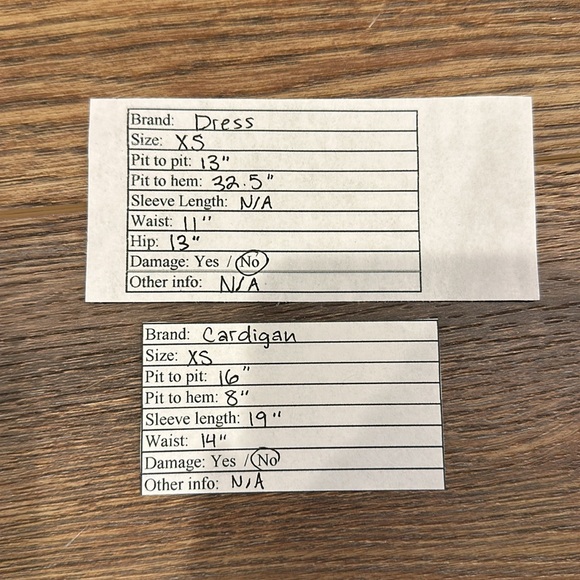 Brand: Dress
Size: XS
Pit to pit: 13"
Pit to hem: 32.5"
Sleeve Length: N/A
Waist: 11"
Hip: 13"
Damage: Yes / No
Other info: N/A
Brand: Cardigan
Size: XS
Pit to pit: 16"
Pit to hem: 8"
Sleeve length: 19"
Waist: 14"
Damage: Yes / No
Other info: N/A